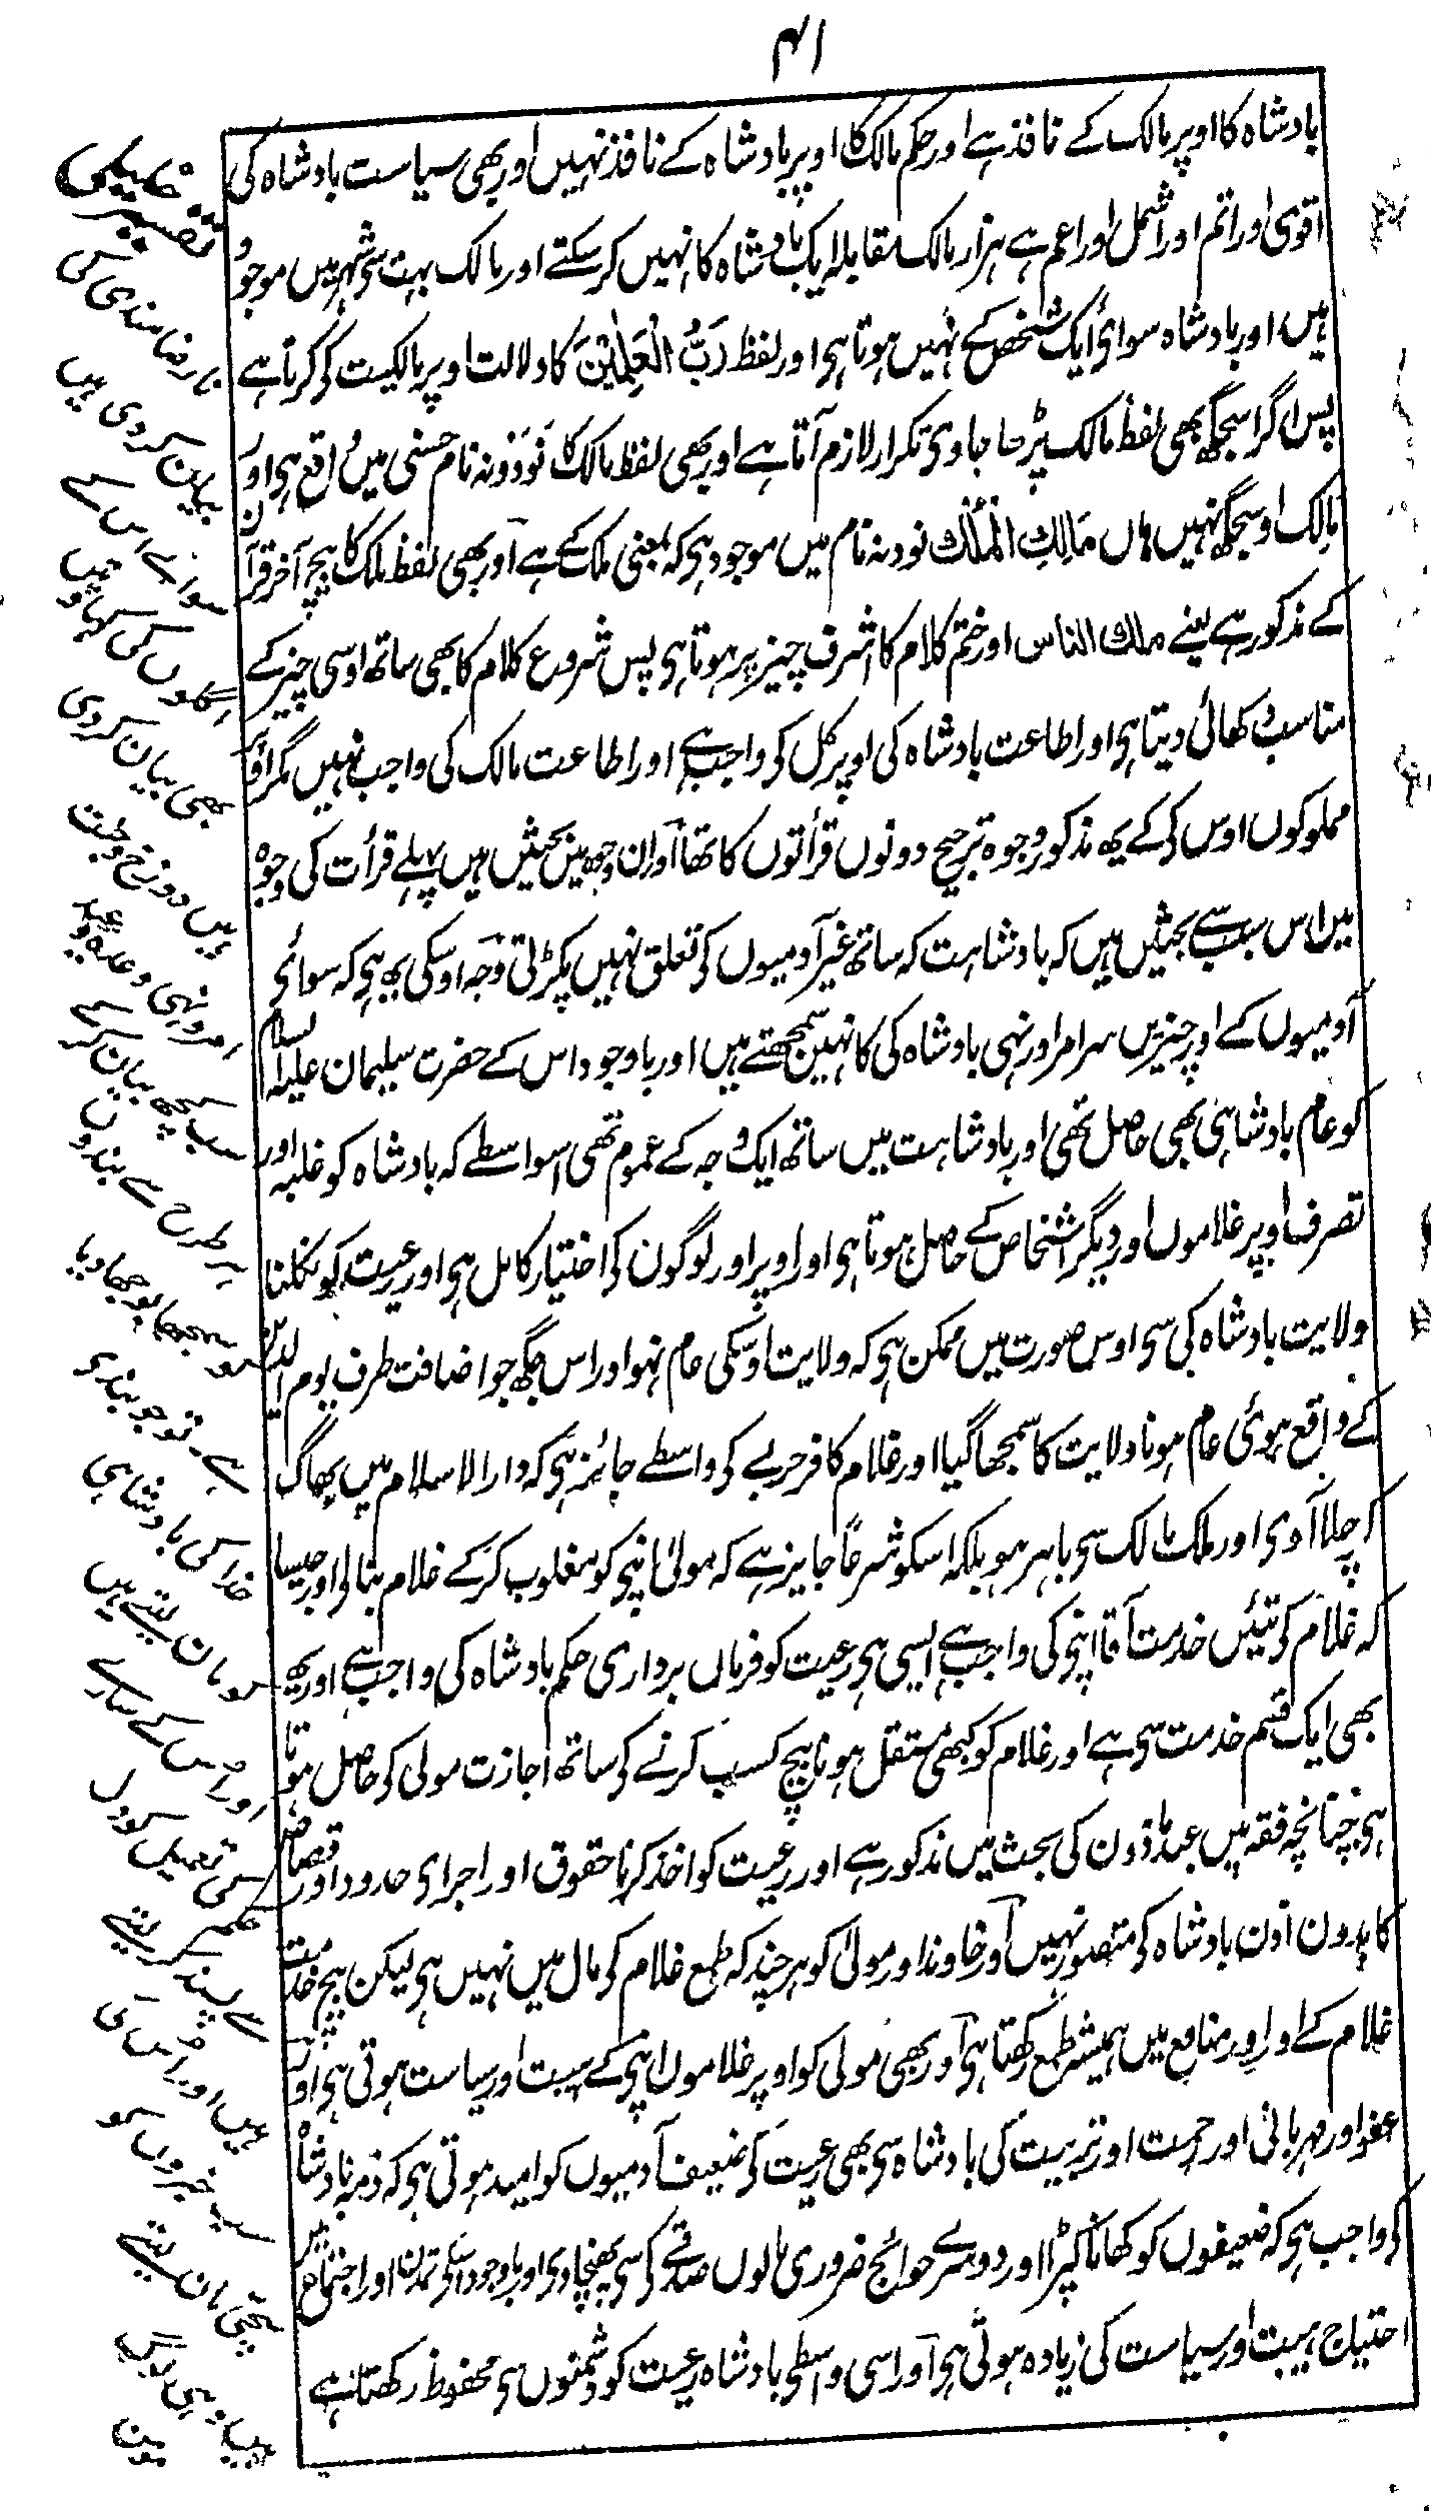 ۴۱
بادشاہ کا اوپر مالک کے نافذ ہے اور حکم مالک کا اوپر بادشاہ کے نافذ نہیں اور بھی سیاست بادشاہ کی
اقوی اور اتم اور اشمل اور اعم ہے ہزار مالک مقابلہ ایک بادشاہ کا نہیں کر سکتے اور مالک بہت سی شہر میں موجود
ہیں اور بادشاہ سوای ایک شخص کے نہیں ہوتا ہی اور لفظ رَبُّ الْعٰلَمِیْنَ کا دلالت اوپر مالکیت کے کرتا ہے
پس اگر اسجگھ بھی لفظ مالک پڑھا جاوی تکرار لازم آتا ہے اور بھی لفظ مالک کا نَوَدْ وَنہ نام حسنی میں واقع ہی اور
مالک اوسجگھ نہیں ہاں مَالِكَ الْمُلْك نودنہ نام میں موجود ہی کہ بمعنی ملک کے ہے اور بھی لفظ ملک کا بیچ آخر قرآن
کے مذکور ہے یعنے ملك الناس اور ختم کلام کا اشرف چیز پر ہوتا ہی پس شروع کلام کا بھی ساتھ اوسی چیز کے
مناسب دکھائی دیتا ہی اور اطاعت بادشاہ کی اوپر کل کے واجب ہے اور اطاعت مالک کی واجب نہیں مگر اوپر
مملوکوں اوس کی کے یھ مذکور وجوہ ترجیح دونوں قرأتوں کا تھا اور ان وجھ میں بحثیں ہیں پہلے قرأت کی وجوہ
میں اس سبب سے بحثیں ہیں کہ بادشاہت کہ ساتھ غیر آدمیوں کے تعلق نہیں پکڑتی وجہ اوسکی یھ ہی کہ سوائے
آدمیوں کے اور چیزیں سرامر اور نہی بادشاہ کی کا نہیں سمجھتے ہیں اور باوجود اس کے حضرت سلیمان علیہ السلام
کو عام بادشاہی بھی حاصل تھی اور بادشاہت میں ساتھ ایک وجہ کے عموم تھی اسواسطے کہ بادشاہ کو غلبہ اور
تصرف اوپر غلاموں اور دیگر اشخاص کے حاصل ہوتا ہی اور اوپر اور لوگون کے اختیار کامل ہی اور رعیت کو نکلنا
ولایت بادشاہ کی سی اوس صورت میں ممکن ہی کہ ولایت اوسکی عام نہو اور اس جگھ جو اضافت طرف یوم الدین
کے واقع ہوئی عام ہونا ولایت کا سمجھا گیا اور غلام کافر حربے کے واسطے جائز ہی کہ دار الاسلام میں بھاگ
کر چلا آوی اور ملک مالک سی باہر ہو بلکہ اسکو شرعاً جایز ہے کہ مولی اپنی کو مغلوب کر کے غلام بنالی اور جیسا
کہ غلام کے تئیں خدمت آقا اپنی کی واجب ہے ایسی ہی رعیت کو فرماں برداری حکم بادشاہ کی واجب ہے اور یھ
بھی ایک قسم خدمت سی ہے اور غلام کو کبھی مستقل ہونا بیچ کسب کرنے کے ساتھ اجازت مولی کو حاصل ہوتا
ہی چنانچہ فقہ میں عبد ماذون کی بحث میں مذکور ہے اور رعیت کو اخذ کرنا حقوق اور اجرای حدود اور قصاص
کا بدون اذن بادشاہ کے متصور نہیں اور خاوند اور مولیٰ کو ہر چند کہ طمع غلام کے مال میں نہیں ہی لیکن بیچ خدمت
غلام کے اور اور منافع میں ہمیشہ طمع رکھتا ہی اور بھی مولی کو اوپر غلاموں اپنی کے ہیبت اور سیاست ہوتی ہی اور
عفو اور مہربانی اور رحمت اور تربیت کی بادشاہ سی بھی رعیت کے ضعیف آدمیوں کو امید ہوتی ہی کہ ذمہ بادشاہ
کے واجب ہی کہ ضعیفوں کو کھانا کپڑا اور دوسرے حوائج ضروری مالوں صدقے کے سی پھنچاوی اور باوجود اسکی تمدن اور اجتماع میں
احتیاج ہیبت اور سیاست کی زیادہ ہوتی ہی اور اسی واسطی بادشاہ رعیت کو دشمنوں سی محفوظ رکھتا ہے
بیان کر دی ہیں
بھی بیان کر دی
ہیں دوزخ و جنت
سب کچھ بیان کر کے
ہر طرح سے بندوں
کو سمجھا بوجھا دیا
ہے۔ تو جو بندی
خدا کی بادشاہی
کو مان لیتے ہیں